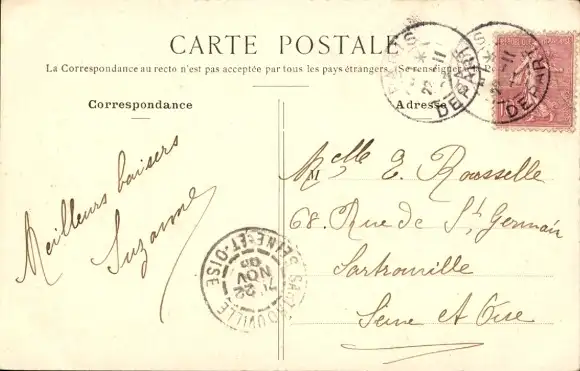 CARTE POSTALE
La Correspondance au recto n'est pas acceptée par tous les pays étrangers (Se renseigner
Correspondance
Adresse
Meilleurs baisers
Suzanne
Mlle E. Rousselle
68. Rue de St Germain
Sartrouville
Seine et Oise
SARTROUVILLE
SEINE-ET-OISE
22
NOV
DEPART
DEPART